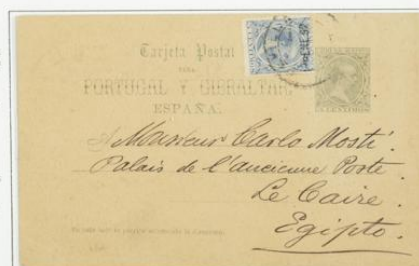 Tarjeta Postal
PARA
PORTUGAL Y GIBRALTAR
ESPAÑA.
A Monsieur Carlo Mosti.
Palais de l'ancienne Poste
Le Caire.
Egipto.